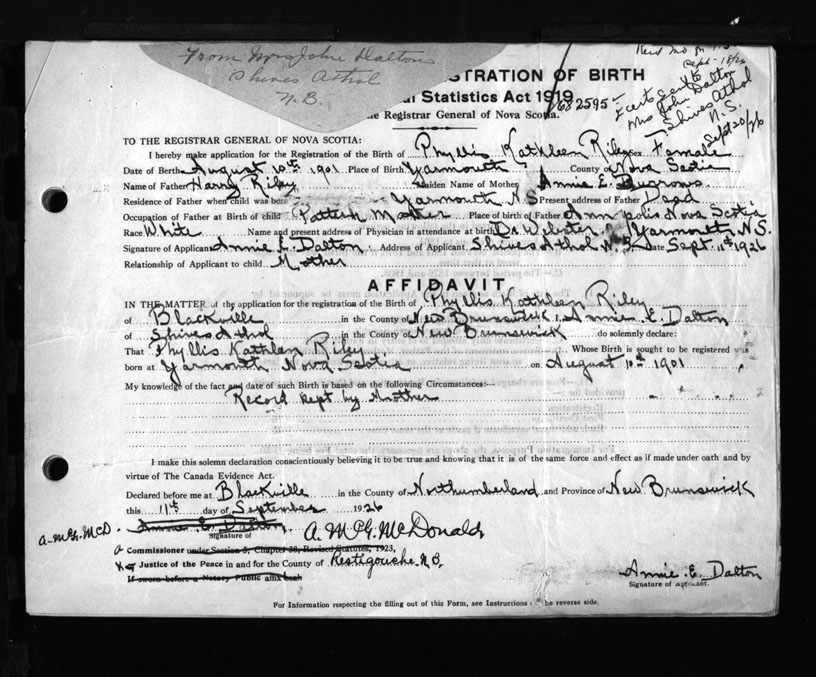 From Mrs John Dalton
Shives Athol
N.B.
Sept 18/26
Mrs John Dalton
Shives Athol
N.S.
Sept 20/26
STRATION OF BIRTH
al Statistics Act 1919
682595
he Registrar General of Nova Scotia.
TO THE REGISTRAR GENERAL OF NOVA SCOTIA:
I hereby make application for the Registration of the Birth of Phyllis Kathleen Riley Sex Female
Date of Birth August 10th 1901 Place of Birth Yarmouth County of Nova Scotia
Name of Father Harry Riley Maiden Name of Mother Annie E.
Residence of Father when child was born Yarmouth N.S Present address of Father Dead
Occupation of Father at Birth of child Place of birth of Father Annapolis Nova Scotia
Race White Name and present address of Physician in attendance at birth Dr. Webster Yarmouth N.S.
Signature of Applicant Annie E. Dalton Address of Applicant Shives Athol N.B. Date Sept. 11th 1926
Relationship of Applicant to child Mother
AFFIDAVIT
IN THE MATTER of the application for the registration of the Birth of Phyllis Kathleen Riley
of Blackville in the County of New Brunswick I, Annie E. Dalton
of Shives Athol in the County of New Brunswick do solemnly declare:
That Phyllis Kathleen Riley Whose Birth is sought to be registered was
born at Yarmouth Nova Scotia on August 10th 1901
My knowledge of the fact and date of such Birth is based on the following Circumstances:—
Record kept by Mother
I make this solemn declaration conscientiously believing it to be true and knowing that it is of the same force and effect as if made under oath and by
virtue of The Canada Evidence Act.
Declared before me at Blackville in the County of Northumberland and Province of New Brunswick
this 11th day of September 1926
A. McG. McD. Annie E. Dalton A. McG. McDonald
Signature of
a Commissioner under Section 5, Chapter 38, Revised Statutes, 1923,
Justice of the Peace in and for the County of Restigouche N.B.
If sworn before a Notary Public affix seal
Annie E. Dalton
Signature of Applicant.
For Information respecting the filling out of this Form, see Instructions on the reverse side.